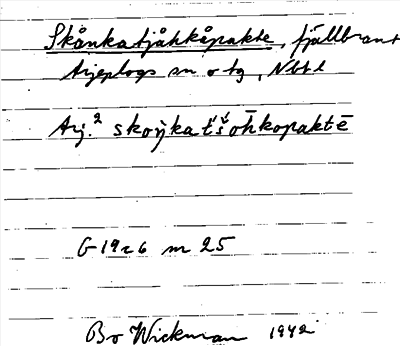 Skånkatjåhkåpakte, fjällbrant
Arjeplogs sn o tg, Nbtl
Arj.² skoŋ̀kat́š́ōhkopaktē
G 19 c 6 m 25
Bo Wickman 1942